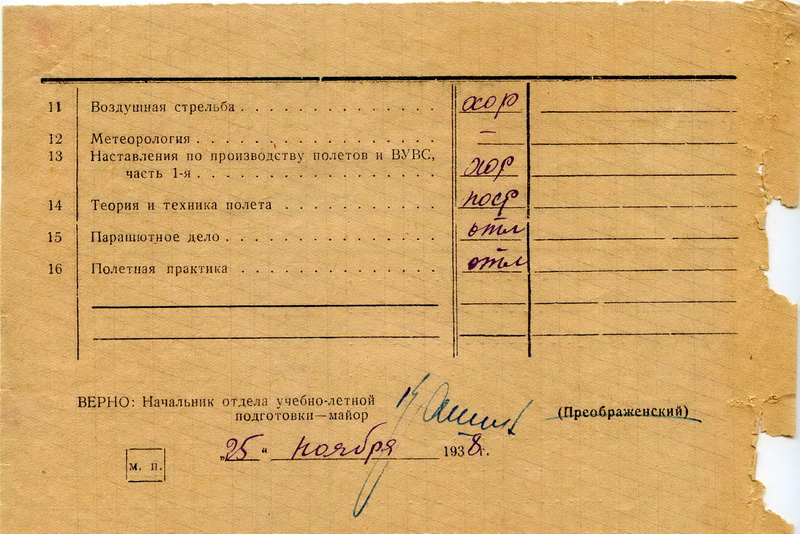 11 Воздушная стрельба . . . . . . . . . . . . . хор
12 Метеорология . . . . . . . . . . . . . . . . —
13 Наставления по производству полетов и ВУВС,
часть 1-я . . . . . . . . . . . . . . . хор
14 Теория и техника полета . . . . . . . . . . поср
15 Парашютное дело . . . . . . . . . . . . . . отл
16 Полетная практика . . . . . . . . . . . . . отл
ВЕРНО: Начальник отдела учебно-летной
подготовки—майор (Преображенский)
„25“ ноября 1938г.
м. п.